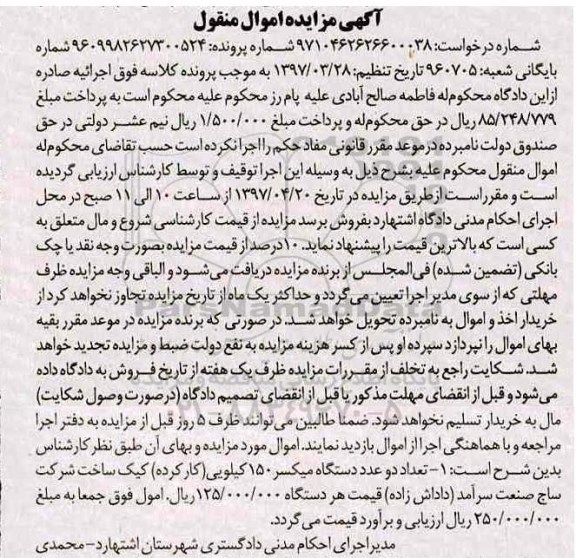 آگهی مزایده اموال منقول
شماره درخواست: ۹۷۱۰۴۶۲۶۲۶۶۰۰۰۳۸ شماره پرونده: ۹۶۰۹۹۸۲۶۲۷۳۰۰۵۲۴ شماره
بایگانی شعبه: ۹۶۰۷۰۵ تاریخ تنظیم: ۱۳۹۷/۰۳/۲۸ به موجب پرونده کلاسه فوق اجرائیه صادره
از این دادگاه محکوم‌له فاطمه صالح آبادی علیه پام رز محکوم علیه محکوم است به پرداخت مبلغ
۸۵/۲۴۸/۷۷۹ ریال در حق محکوم‌له و پرداخت مبلغ ۱/۵۰۰/۰۰۰ ریال نیم عشر دولتی در حق
صندوق دولت نامبرده در موعد مقرر قانونی مفاد حکم را اجرا نکرده است حسب تقاضای محکوم‌له
اموال منقول محکوم علیه بشرح ذیل به وسیله این اجرا توقیف و توسط کارشناس ارزیابی گردیده
است و مقرر است از طریق مزایده در تاریخ ۱۳۹۷/۰۴/۲۰ از ساعت ۱۰ الی ۱۱ صبح در محل
اجرای احکام مدنی دادگاه اشتهارد بفروش برسد مزایده از قیمت کارشناسی شروع و مال متعلق به
کسی است که بالاترین قیمت را پیشنهاد نماید. ۱۰درصد از قیمت مزایده بصورت وجه نقد یا چک
بانکی (تضمین شده) فی‌المجلس از برنده مزایده دریافت می‌شود و الباقی وجه مزایده ظرف
مهلتی که از سوی مدیر اجرا تعیین می‌گردد و حداکثر یک ماه از تاریخ مزایده تجاوز نخواهد کرد از
خریدار اخذ و اموال به نامبرده تحویل خواهد شد. در صورتی که برنده مزایده در موعد مقرر بقیه
بهای اموال را نپردازد سپرده او پس از کسر هزینه مزایده به نفع دولت ضبط و مزایده تجدید خواهد
شد. شکایت راجع به تخلف از مقررات مزایده ظرف یک هفته از تاریخ فروش به دادگاه داده
می‌شود و قبل از انقضای مهلت مذکور یا قبل از انقضای تصمیم دادگاه (در صورت وصول شکایت)
مال به خریدار تسلیم نخواهد شود. ضمناً طالبین می‌توانند ظرف ۵ روز قبل از مزایده به دفتر اجرا
مراجعه و با هماهنگی اجرا از اموال بازدید نمایند. اموال مورد مزایده و بهای آن طبق نظر کارشناس
بدین شرح است: ۱- تعداد دو عدد دستگاه میکسر ۱۵۰ کیلویی (کار کرده) کیک ساخت شرکت
ساج صنعت سرآمد (داداش زاده) قیمت هر دستگاه ۱۲۵/۰۰۰/۰۰۰ریال. امول فوق جمعا به مبلغ
۲۵۰/۰۰۰/۰۰۰ ریال ارزیابی و برآورد قیمت می گردد.
مدیر اجرای احکام مدنی دادگستری شهرستان اشتهارد- محمدی